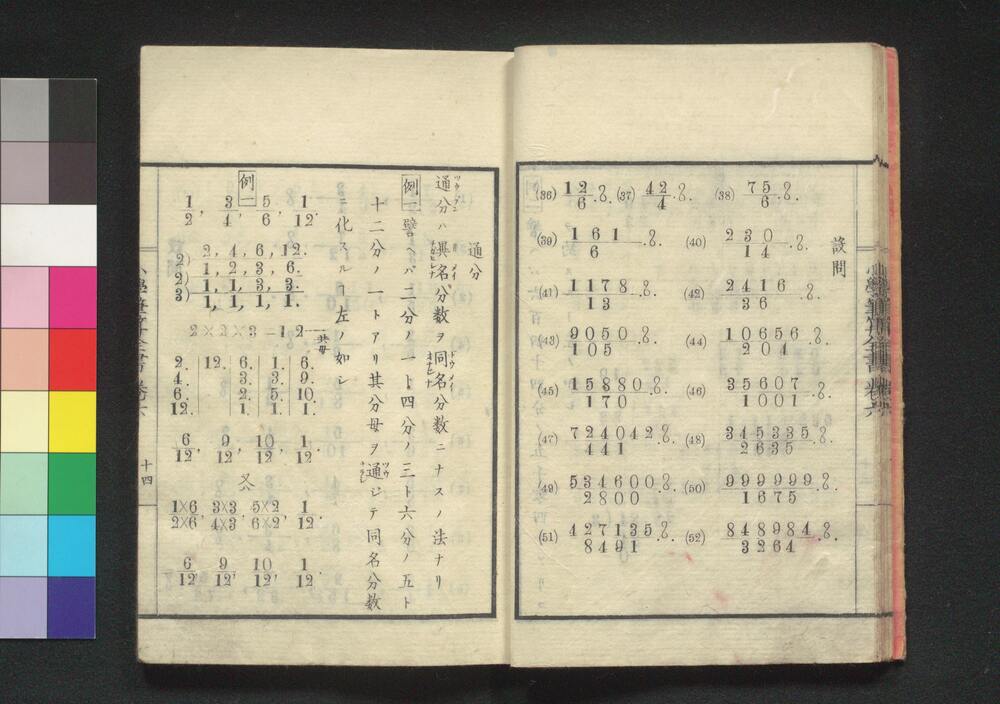 設問
(36) 12/6.8. (37) 42/4.8. (38) 75/6.8.
(39) 161/6.8. (40) 230/14.8.
(41) 1178/13.8. (42) 2416/36.8.
(43) 9050/105.8. (44) 10656/204.8.
(45) 15880/170.8. (46) 35607/1001.8.
(47) 724042/441.8. (48) 345335/2635.8.
(49) 534600/2800.8. (50) 999999/1675.8.
(51) 427135/8491.8. (52) 848984/3264.8.
通分
通分ハ異名分数ヲ同名分数ニナスノ法ナリ
例一 譬ヘバ二分ノ一ト四分ノ三ト六分ノ五ト
十二分ノ一トアリ其分母ヲ通ジテ同名分数
ニ化スルヿ左ノ如シ
例一
1/2, 3/4, 5/6, 1/12.
2) 2, 4, 6, 12.
2) 1, 2, 3, 6.
3) 1, 1, 3, 3.
1, 1, 1, 1.
2×2×3=12 共母
2. 12. 6. 1. 6.
4. 3. 3. 9.
6. 2. 5. 10.
12. 1. 1. 1.
6/12, 9/12, 10/12, 1/12.
又
1×6/2×6, 3×3/4×3, 5×2/6×2, 1/12.
6/12, 9/12, 10/12, 1/12.
十四